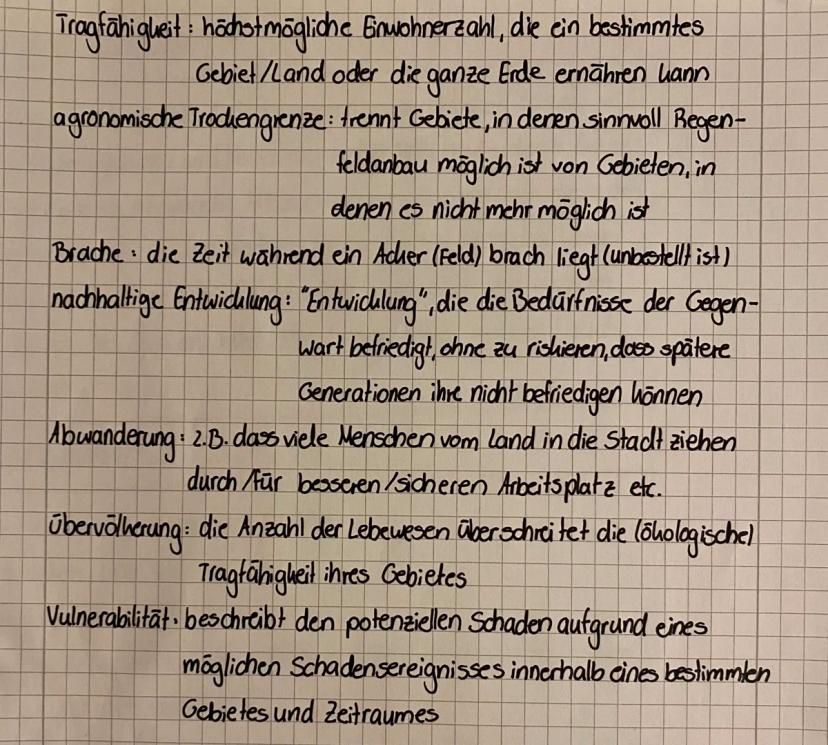 Tragfähigkeit: höchstmögliche Einwohnerzahl, die ein bestimmtes
Gebiet/Land oder die ganze Erde ernähren kann
agronomische Trockengrenze: trennt Gebiete, in denen sinnvoll Regen-
feldanbau möglich ist von Gebieten, in
denen es nicht mehr möglich ist
Brache: die Zeit während ein Acker (Feld) brach liegt (unbestellt ist)
nachhaltige Entwicklung: "Entwicklung", die die Bedürfnisse der Gegen-
wart befriedigt, ohne zu riskieren, dass spätere
Generationen ihre nicht befriedigen können
Abwanderung: z.B. dass viele Menschen vom Land in die Stadt ziehen
durch/für besseren/sicheren Arbeitsplatz etc.
Übervölkerung: die Anzahl der Lebewesen überschreitet die (ökologische)
Tragfähigkeit ihres Gebietes
Vulnerabilität: beschreibt den potenziellen Schaden aufgrund eines
möglichen Schadensereignisses innerhalb eines bestimmten
Gebietes und Zeitraumes